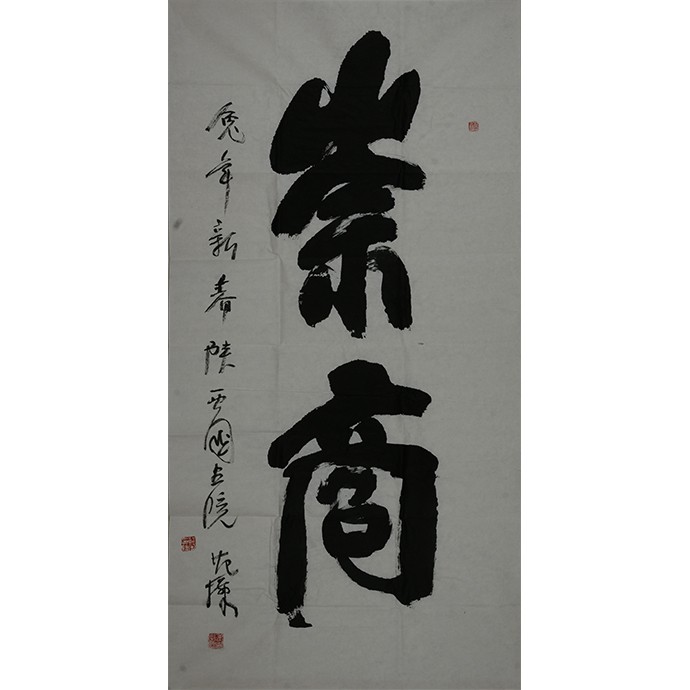 崇商
兔年新春陕西國画院 范